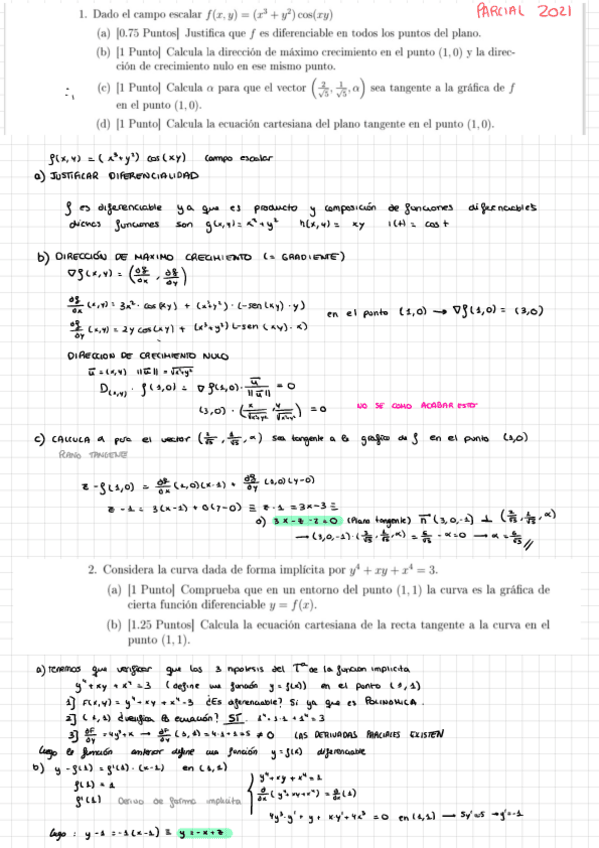 PARCIAL 2021
1. Dado el campo escalar f(x, y) = (x³ + y²) cos(xy)
(a) [0.75 Puntos] Justifica que f es diferenciable en todos los puntos del plano.
(b) [1 Punto] Calcula la dirección de máximo crecimiento en el punto (1, 0) y la direc-
ción de crecimiento nulo en ese mismo punto.
(c) [1 Punto] Calcula α para que el vector (2/√5, 1/√5, α) sea tangente a la gráfica de f
en el punto (1, 0).
(d) [1 Punto] Calcula la ecuación cartesiana del plano tangente en el punto (1, 0).
f(x,y) = (x³+y²) cos(xy) campo escalar
a) JUSTIFICAR DIFERENCIALIDAD
f es diferenciable ya que es producto y composición de funciones diferenciables
dichas funciones son g(x,y) = x³+y² h(x,y) = xy l(t) = cos t
b) DIRECCIÓN DE MAXIMO CRECIMIENTO (= GRADIENTE)
∇f(x,y) = (∂f/∂x , ∂f/∂y)
∂f/∂x (x,y) = 3x² · cos(xy) + (x³+y²) · (-sen(xy) · y)
en el punto (1,0) → ∇f(1,0) = (3,0)
∂f/∂y (x,y) = 2y cos(xy) + (x³+y²) (-sen(xy) · x)
DIRECCION DE CRECIMIENTO NULO
u = (x,y) ||u|| = √x²+y²
D(x,y) · f(1,0) = ∇f(1,0) · u/||u|| = 0
(3,0) · (x/√x²+y², y/√x²+y²) = 0 NO SE COMO ACABAR ESTO
c) CALCULA α para el vector (2/√5, 1/√5, α) sea tangente a la grafica de f en el punto (1,0)
PLANO TANGENTE
z - f(1,0) = ∂f/∂x (1,0)(x-1) + ∂f/∂y (1,0)(y-0)
z - 1 = 3(x-1) + 0(y-0) ≡ z - 1 = 3x-3 ≡
d) 3x-z-2=0 (Plano tangente) n (3,0,-1) ⊥ (2/√5, 1/√5, α)
→ (3,0,-1) · (2/√5, 1/√5, α) = 6/√5 - α = 0 → α = 6/√5 //
2. Considera la curva dada de forma implícita por y⁴ + xy + x⁴ = 3.
(a) [1 Punto] Comprueba que en un entorno del punto (1, 1) la curva es la gráfica de
cierta función diferenciable y = f(x).
(b) [1.25 Puntos] Calcula la ecuación cartesiana de la recta tangente a la curva en el
punto (1, 1).
a) TENEMOS que verificar que las 3 hipotesis del Tª de la funcion implicita
y⁴+xy + x⁴ = 3 (define una función y = f(x)) en el punto (1,1)
1] F(x,y) = y⁴+xy + x⁴-3 ¿Es diferenciable? Si ya que es POLINOMICA.
2] (1,1) ¿verifica la ecuación? SI. 1⁴+1·1+1⁴=3
3] ∂F/∂y = 4y³+x → ∂F/∂y (1,1) = 4·1+1=5 ≠ 0 LAS DERIVADAS PARCIALES EXISTEN
Luego la función anterior define una función y = f(x) diferenciable
b) y - f(1) = f'(1) · (x-1) en (1,1)
y⁴+xy + x⁴ = 1
f(1) = 1
∂/∂x (y⁴+xy+x⁴) = ∂/∂x (1)
f'(1) Derivo de forma implicita
4y³·y' + y + x·y' + 4x³ = 0 en (1,1) → 5y'=5 → y'=-1
Luego: y-1 = -1(x-1) ≡ y = -x+2